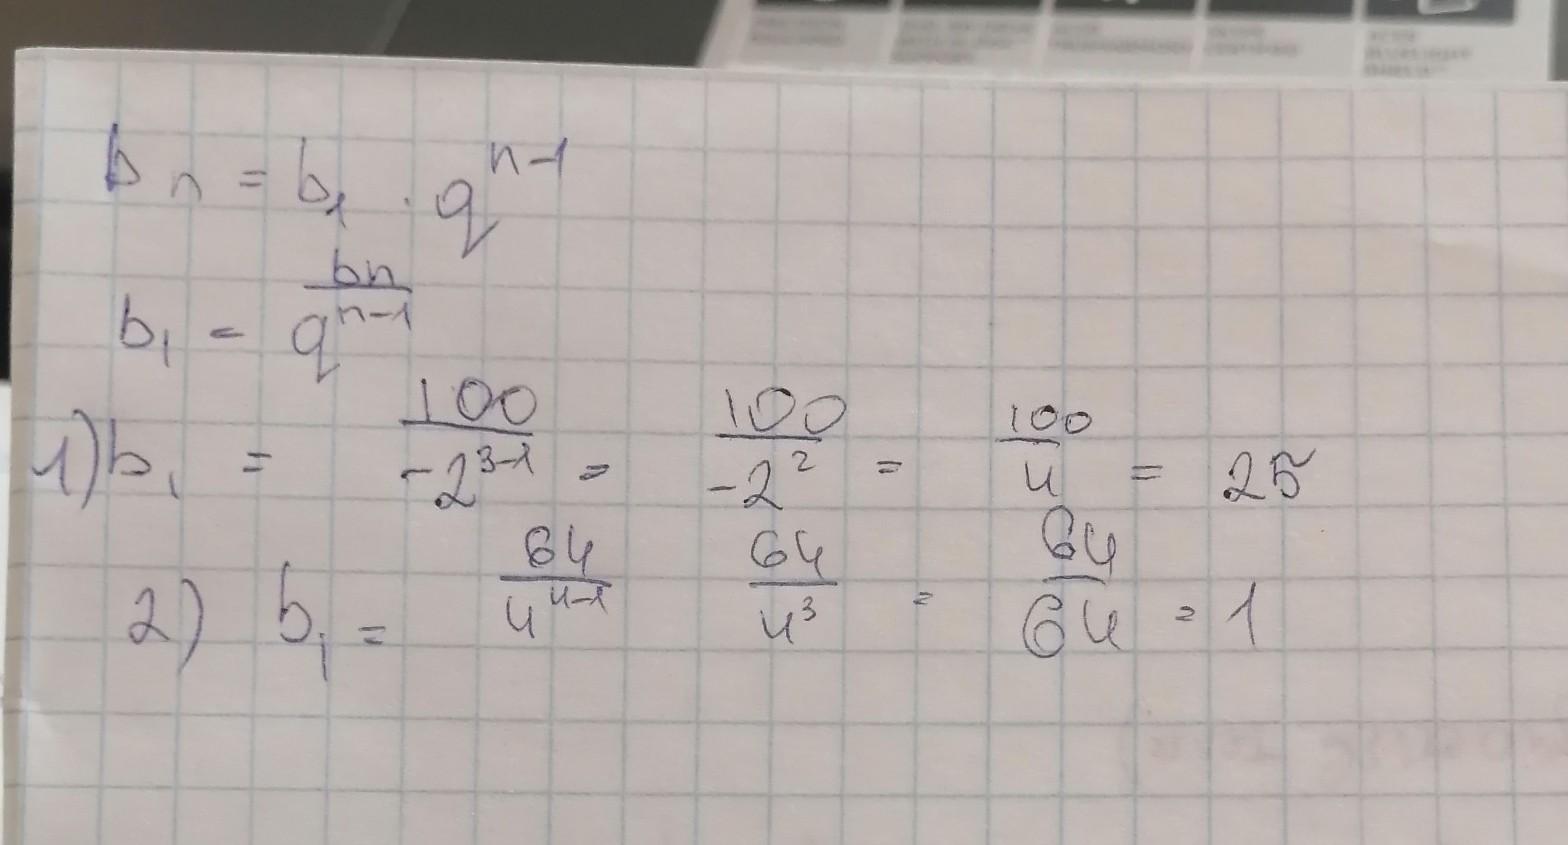 bn = b₁ · qⁿ⁻¹
b₁ = bn / qⁿ⁻¹
1) b₁ = 100 / -2³⁻¹ = 100 / -2² = 100 / 4 = 25
2) b₁ = 64 / 4⁴⁻¹ 64 / 4³ = 64 / 64 = 1